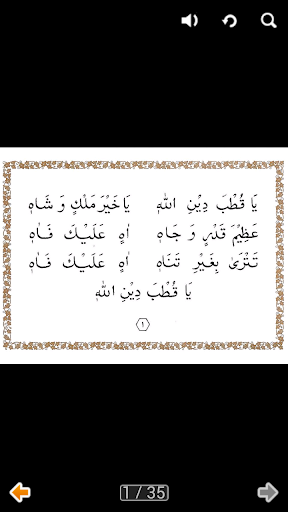 يَا قُطْبَ دِيْنِ اللهْ يَا خَيْرَ مَلْكٍ وَ شَاهْ
عَظِيْمَ قَدْرٍ وَ جَاهْ اٰهٍ عَلَيْكَ فَاٰهْ
تَتْرَىٰ بِغَيْرِ تَنَاهْ اٰهٍ عَلَيْكَ فَاٰهْ
يَا قُطْبَ دِيْنِ اللهْ
١
1 / 35